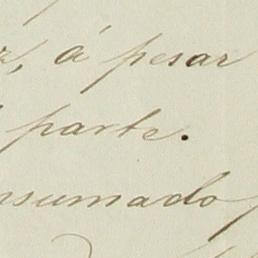 á pesar
parte.
nsumado